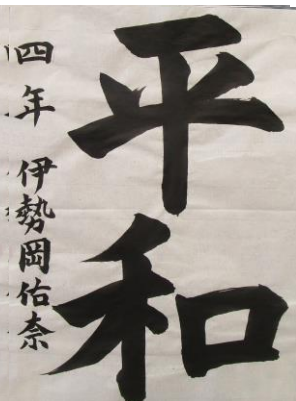 平和
四年 伊勢岡佑奈